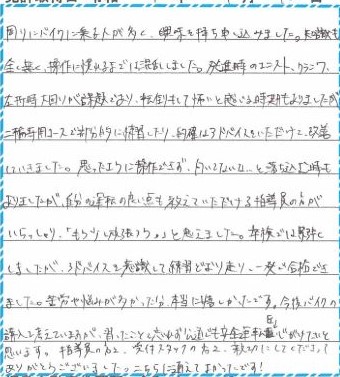 周りにバイクに乗る人が多く、興味を持ち申し込みました。知識も
全く無く、操作に慣れるまでは苦労しました。発進時のエンスト、クランク、
左折時大回りが課題であり、転倒もして怖いと感じる時期もありましたが
二輪専用コースで半分的に練習したり、的確なアドバイスをいただけて、改善
していきました。思ったように操作できず、向いてないな…と落ち込む時も
ありましたが、自分の運転の良い点も教えていただける指導員の方が
いらっしゃり、「もう少し頑張ろう。」と思えました。本検では緊張
しましたが、アドバイスを意識して練習どおり走り、一発で合格でき
ました。苦労や悩みが多かった分、本当に嬉しかったです。今後バイクの
購入も考えていますが、習ったことを忘れず公道でも安全運転を心がけたいと
思います。指導員の方々、受付スタッフの方々、お世話してくださって
ありがとうございました。こちらに通えてよかったです!